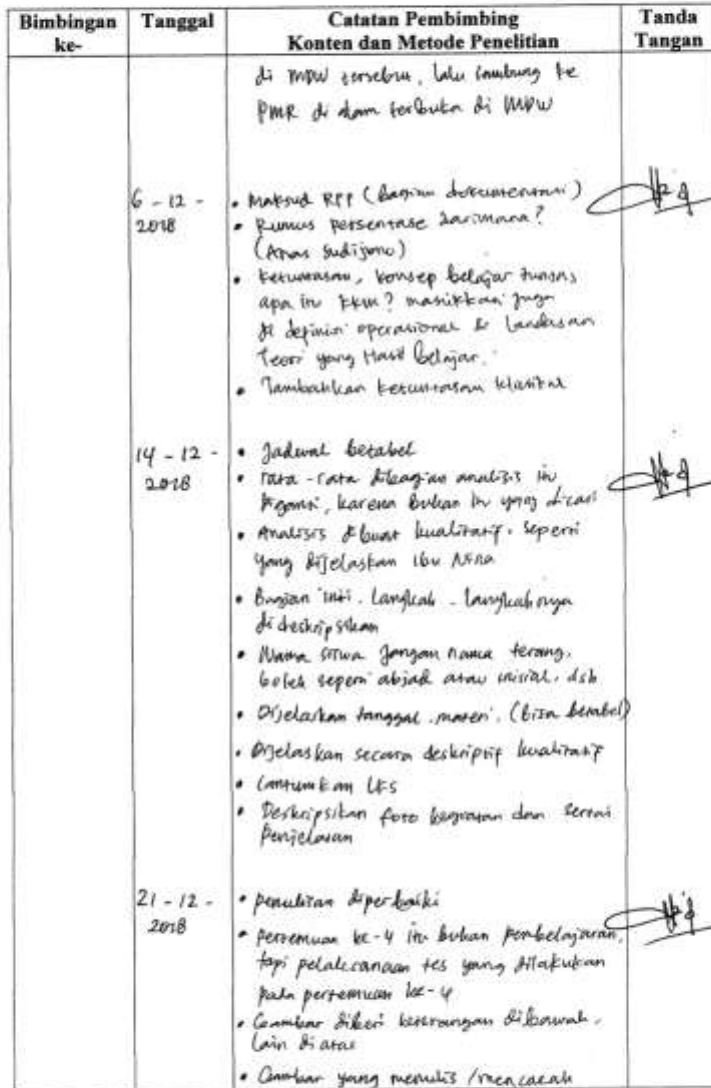 Bimbingan ke-
Tanggal
Catatan Pembimbing
Konten dan Metode Penelitian
Tanda Tangan
di MPW tersebut, lalu sambung ke
PMR di alam terbuka di MPW
6 - 12 -
2018
• Maksud RPP (Bagian dokumentasi)
• Rumus persentase darimana?
(Anas Sudijono)
• Ketuntasan, konsep belajar tuntas
apa itu KKM? masukkan juga
di definisi operasional & Landasan
Teori yang Hasil Belajar.
• Tambahkan ketuntasan klasikal
14 - 12 -
2018
• Jadwal betabel
• rata-rata dibagian analisis itu
diganti, karena bukan itu yang dicari
• Analisis dibuat kualitatif. seperti
yang dijelaskan ibu
• Bagian inti. Langkah - langkahnya
dideskripsikan
• Nama siswa jangan nama terang.
boleh seperti abjad atau inisial. dsb
• Dijelaskan tanggal. materi. (bisa betabel)
• Dijelaskan secara deskriptif kualitatif
• Cantumkan LKS
• Deskripsikan foto kegiatan dan sertai
Penjelasan
21 - 12 -
2018
• penulisan diperbaiki
• Pertemuan ke-4 itu bukan pembelajaran,
tapi pelaksanaan tes yang dilakukan
pada pertemuan ke-4
• Gambar diberi keterangan dibawah,
lain di atas
• Gambar yang menulis / mencacah